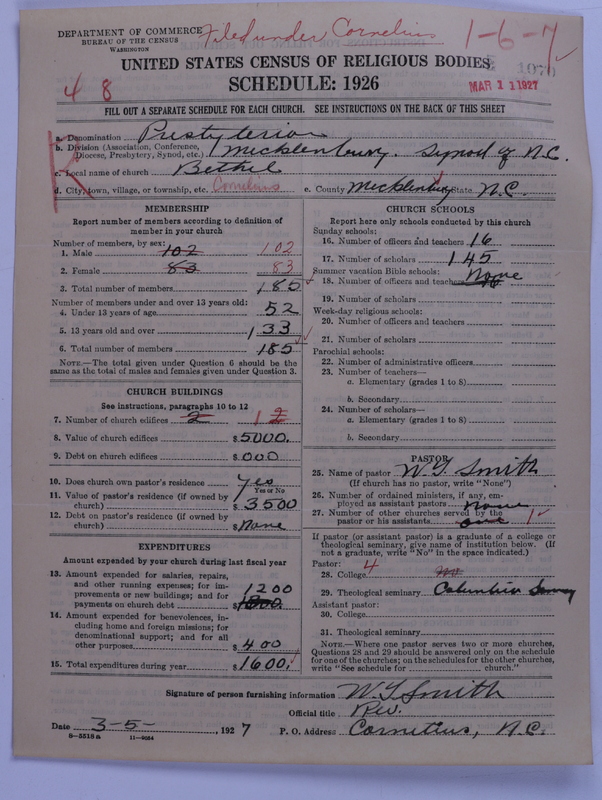 DEPARTMENT OF COMMERCE
BUREAU OF THE CENSUS
WASHINGTON
Filed under Cornelius
1-6-7
1070
UNITED STATES CENSUS OF RELIGIOUS BODIES
SCHEDULE: 1926
MAR 11 1927
4 8
FILL OUT A SEPARATE SCHEDULE FOR EACH CHURCH. SEE INSTRUCTIONS ON THE BACK OF THIS SHEET
a. Denomination Presbyterian
b. Division (Association, Conference, Diocese, Presbytery, Synod, etc.) Mecklenburg. Synod of N.C.
c. Local name of church Bethel
d. City, town, village, or township, etc. Cornelius e. County Mecklenburg State N.C.
MEMBERSHIP
Report number of members according to definition of
member in your church
Number of members, by sex:
1. Male 102 102
2. Female 83 83
3. Total number of members 185
Number of members under and over 13 years old:
4. Under 13 years of age 52
5. 13 years old and over 133
6. Total number of members 185
NOTE.—The total given under Question 6 should be the
same as the total of males and females given under Question 3.
CHURCH BUILDINGS
See instructions, paragraphs 10 to 12
7. Number of church edifices 2 1 2
8. Value of church edifices $ 5000.
9. Debt on church edifices $ 000
10. Does church own pastor's residence Yes
Yes or No
11. Value of pastor's residence (if owned by
church) $ 3500
12. Debt on pastor's residence (if owned by
church) $ None
EXPENDITURES
Amount expended by your church during last fiscal year
13. Amount expended for salaries, repairs,
and other running expenses; for im-
provements or new buildings; and for
payments on church debt 1200
$
14. Amount expended for benevolences, in-
cluding home and foreign missions; for
denominational support; and for all
other purposes $ 400
15. Total expenditures during year $ 1600.
CHURCH SCHOOLS
Report here only schools conducted by this church
Sunday schools:
16. Number of officers and teachers 16
17. Number of scholars 145
Summer vacation Bible schools: None
18. Number of officers and teachers
19. Number of scholars
Week-day religious schools:
20. Number of officers and teachers
21. Number of scholars
Parochial schools:
22. Number of administrative officers
23. Number of teachers—
a. Elementary (grades 1 to 8)
b. Secondary
24. Number of scholars—
a. Elementary (grades 1 to 8)
b. Secondary
PASTOR
25. Name of pastor W. T. Smith
(If church has no pastor, write "None")
26. Number of ordained ministers, if any, em-
ployed as assistant pastors None
27. Number of other churches served by the
pastor or his assistants one 1
If pastor (or assistant pastor) is a graduate of a college or
theological seminary, give name of institution below. (If
not a graduate, write "No" in the space indicated.)
Pastor: 4
28. College No
29. Theological seminary Columbia
Assistant pastor:
30. College
31. Theological seminary
NOTE.—Where one pastor serves two or more churches,
Questions 28 and 29 should be answered only on the schedule
for one of the churches; on the schedules for the other churches,
write "See schedule for church."
Signature of person furnishing information W. T. Smith
Official title Rev.
Date 3-5-, 1927 P. O. Address Cornelius, N.C.
8-5518a 11-9034